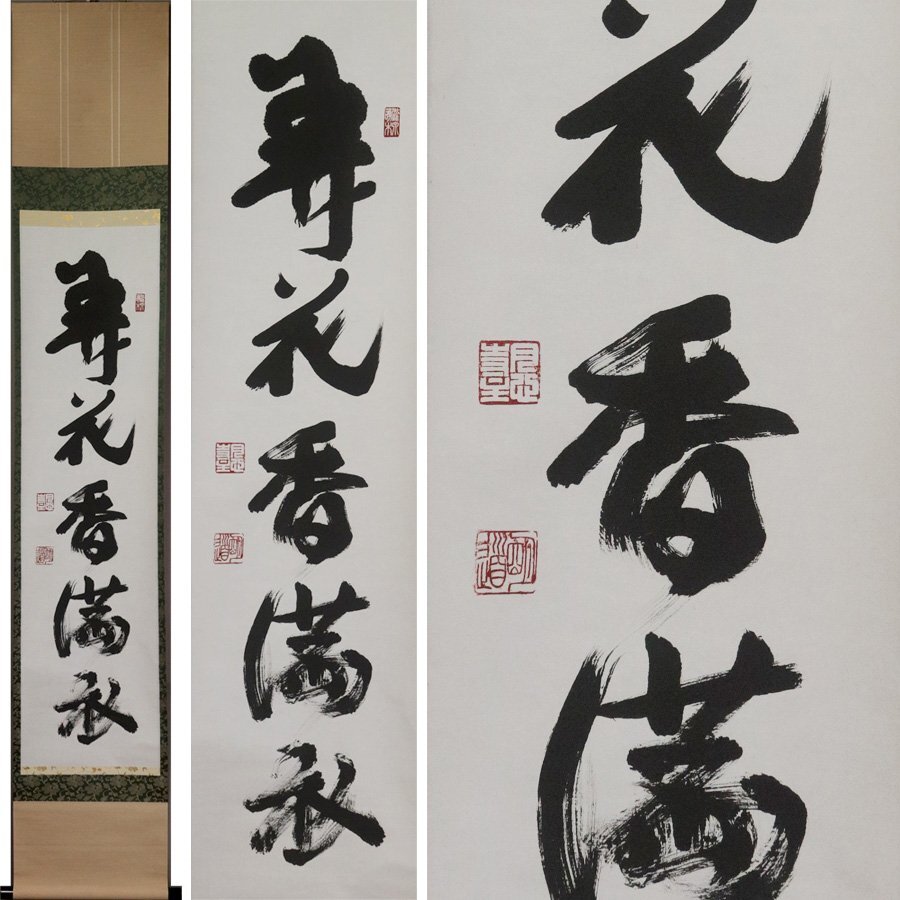 弄花香満衣
弄花香満衣
花香満